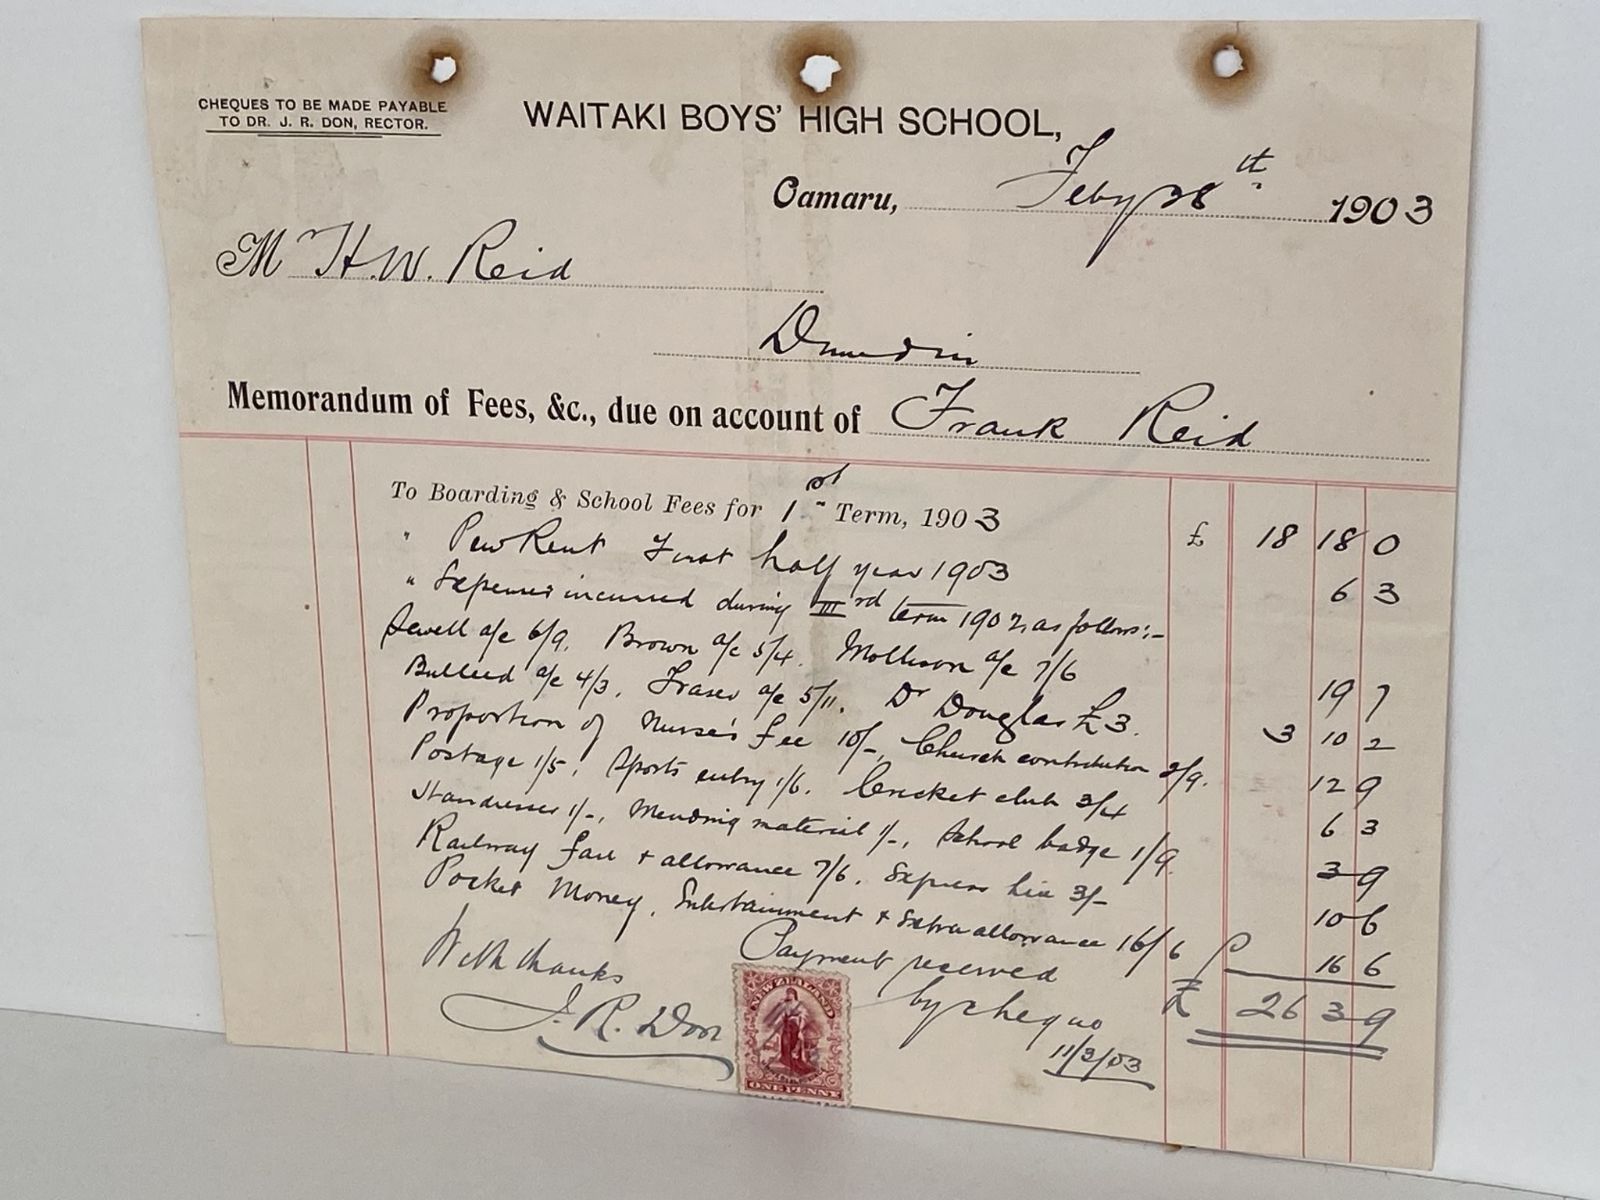 CHEQUES TO BE MADE PAYABLE
TO DR. J. R. DON, RECTOR.
WAITAKI BOYS' HIGH SCHOOL,
Oamaru, Feby 28th 1903
Mr H.W. Reid
Dunedin
Memorandum of Fees, &c., due on account of Frank Reid
To Boarding & School Fees for 1st Term, 1903 £ 18 18 0
" Pew Rent First half year 1903 6 3
" Expenses incurred during IIIrd term 1902, as follows:-
Sewell a/c 6/9. Brown a/c 5/4. Mollison a/c 7/6 19 7
Bulleid a/c 4/3, Fraser a/c 5/11. Dr Douglas £3. 3 10 2
Proportion of Nurse's Fee 10/-, Church contribution 2/9. 12 9
Postage 1/5, Sports entry 1/6. Cricket club 3/4 6 3
Hairdresser 1/-, Mending material 1/-, School badge 1/9. 3 9
Railway fare + allowance 7/6. Express hire 3/- 10 6
Pocket Money, Entertainment & Extra allowance 16/6 16 6
£ 26 3 9
With thanks
J. R. Don
Payment received
by cheque
11/3/03
NEW ZEALAND
ONE PENNY